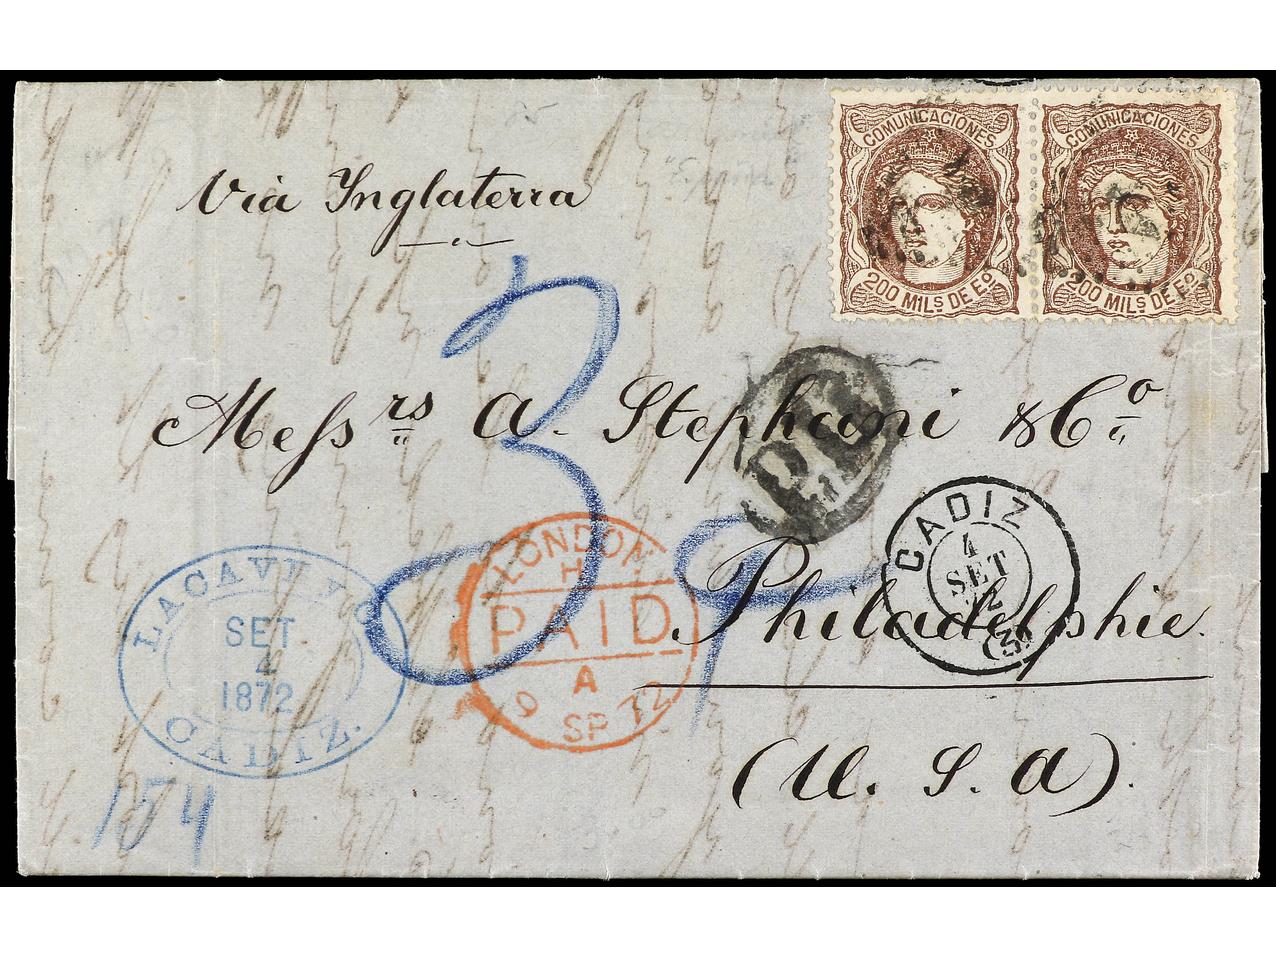 COMUNICACIONES
200 MILS DE Eº
COMUNICACIONES
200 MILS DE Eº
Via Inglaterra
3
Messrs A. Stephani & Co
PD
CADIZ
4
SET
72
(3)
LONDON
PAID
A
9 SP 72
Philadelphie.
LACAVE Y Cª
SET.
4
1872
CADIZ.
(U. S. A).
154